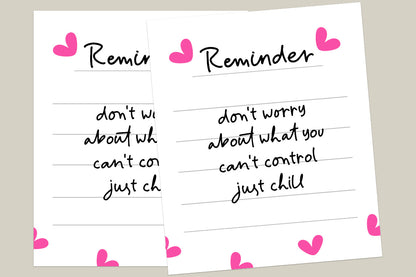 Remin
don't wo
about wh
can't co
just ch
Reminder
don't worry
about what you
can't control
just chill